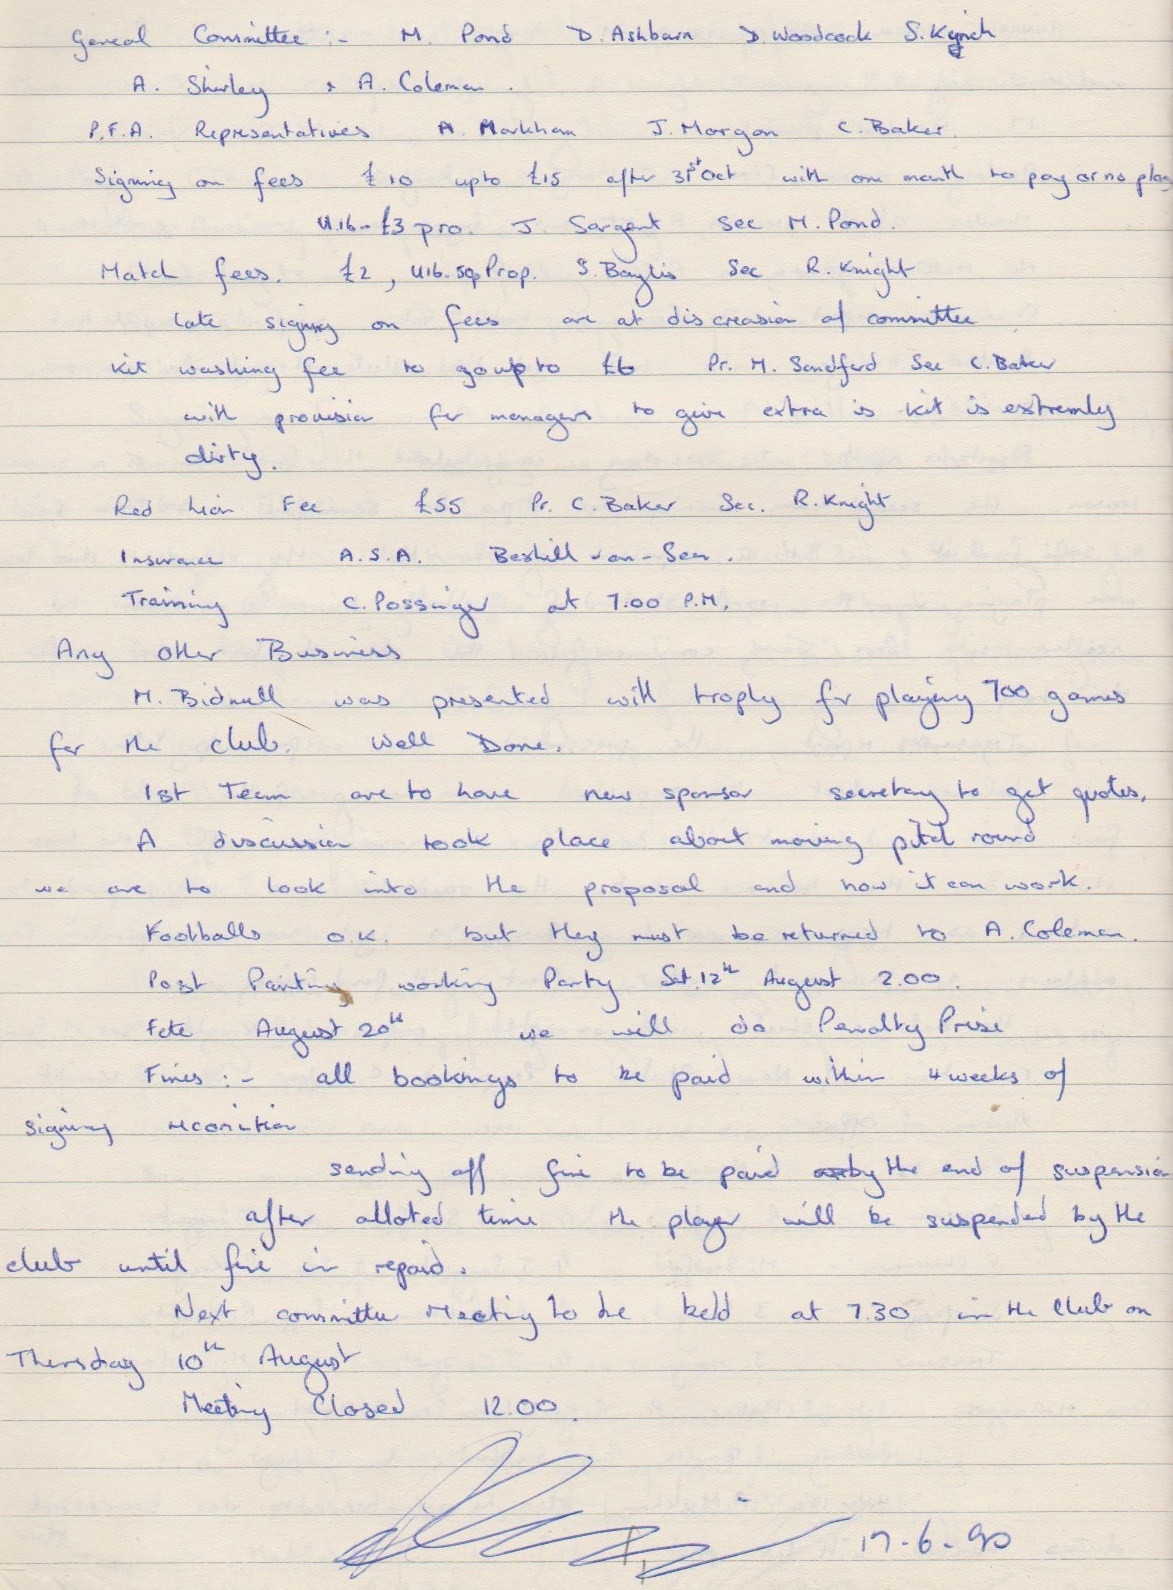 General Committee :- M. Pond D. Ashburn D. Woodcock S. Kynch
A. Shirley & A. Coleman.
P.F.A. Representatives A. Markham J. Morgan C. Baker.
Signing on fees £10 upto £15 after 31st Oct with one month to pay or no play
U.16 - £3 pro. J. Sargent Sec M. Pond.
Match fees. £2, U16. 50p Prop. S. Baylis Sec R. Knight
late signing on fees are at discreasion of committee
Kit washing fee to go up to £6 Pr. M. Sandford Sec C. Baker
with provision for managers to give extra is kit is extremly
dirty.
Red Lion Fee £55 Pr. C. Baker Sec. R. Knight
Insurance A.S.A. Bexhill-on-Sea.
Training C. Possinger at 7.00 P.M.
Any Other Business
M. Bidwell was presented with trophy for playing 700 games
for the club. Well Done.
1st Team are to have new sponsor secretary to get quotes,
A discussion took place about moving pitch round
we are to look into the proposal and how it can work.
Footballs O.K. but they must be returned to A. Coleman.
Post Painting working Party Sat. 12th August 2.00.
Fete August 20th we will do Penalty Prise
Fines :- all bookings to be paid within 4 weeks of
signing
sending off fine to be paid by the end of suspension
after alloted time the player will be suspended by the
club until fine in repaid.
Next committee Meeting to be held at 7.30 in the Club on
Thersday 10th August
Meeting Closed 12.00.
17-6-90